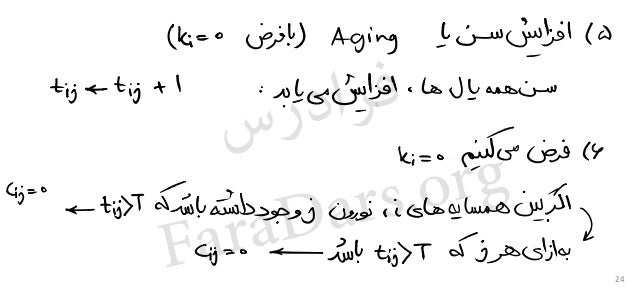 ۵) افزایش سن یا Aging (با فرض ki=0)
سن همه یال ها، افزایش می یابد: tij ← tij + 1
۶) فرض می کنیم ki=0
اگر بین همسایه های i، نورون j وجود داشته باشد که tij>T ← cij=0
به ازای هر j که tij>T باشد ← cij=0
فرادرس
FaraDars.org
24